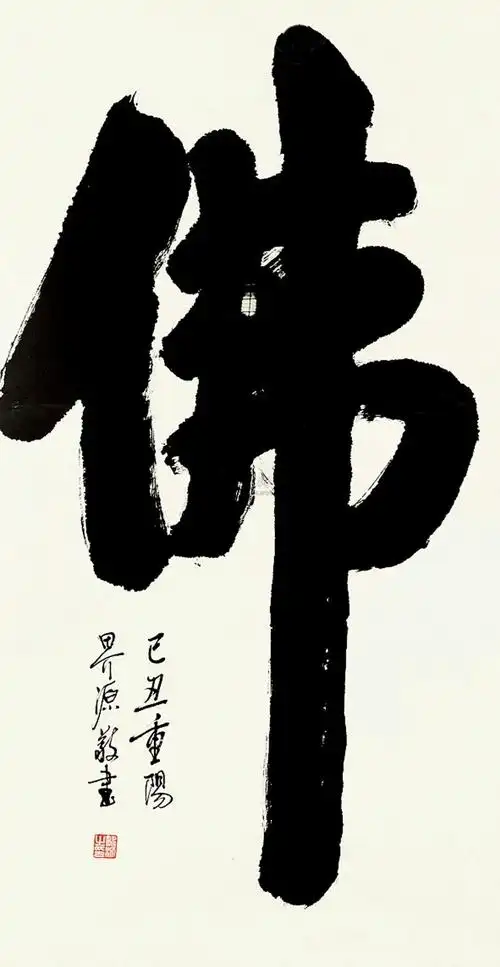 佛
己丑重陽
界源敬書